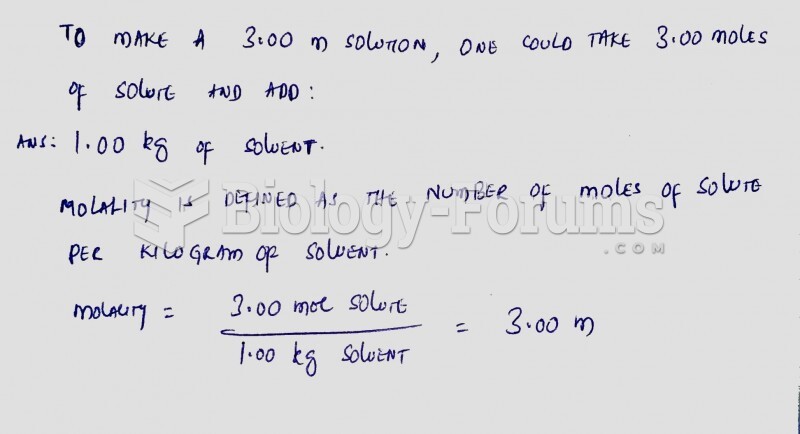 TO MAKE A 3.00 m SOLUTION, ONE COULD TAKE 3.00 MOLES
OF SOLUTE AND ADD:
ANS: 1.00 kg OF SOLVENT.
MOLALITY IS DEFINED AS THE NUMBER OF MOLES OF SOLUTE
PER KILOGRAM OF SOLVENT.
Biology-Forums
.COM
MOLALITY = 3.00 mol SOLUTE / 1.00 kg SOLVENT = 3.00 m